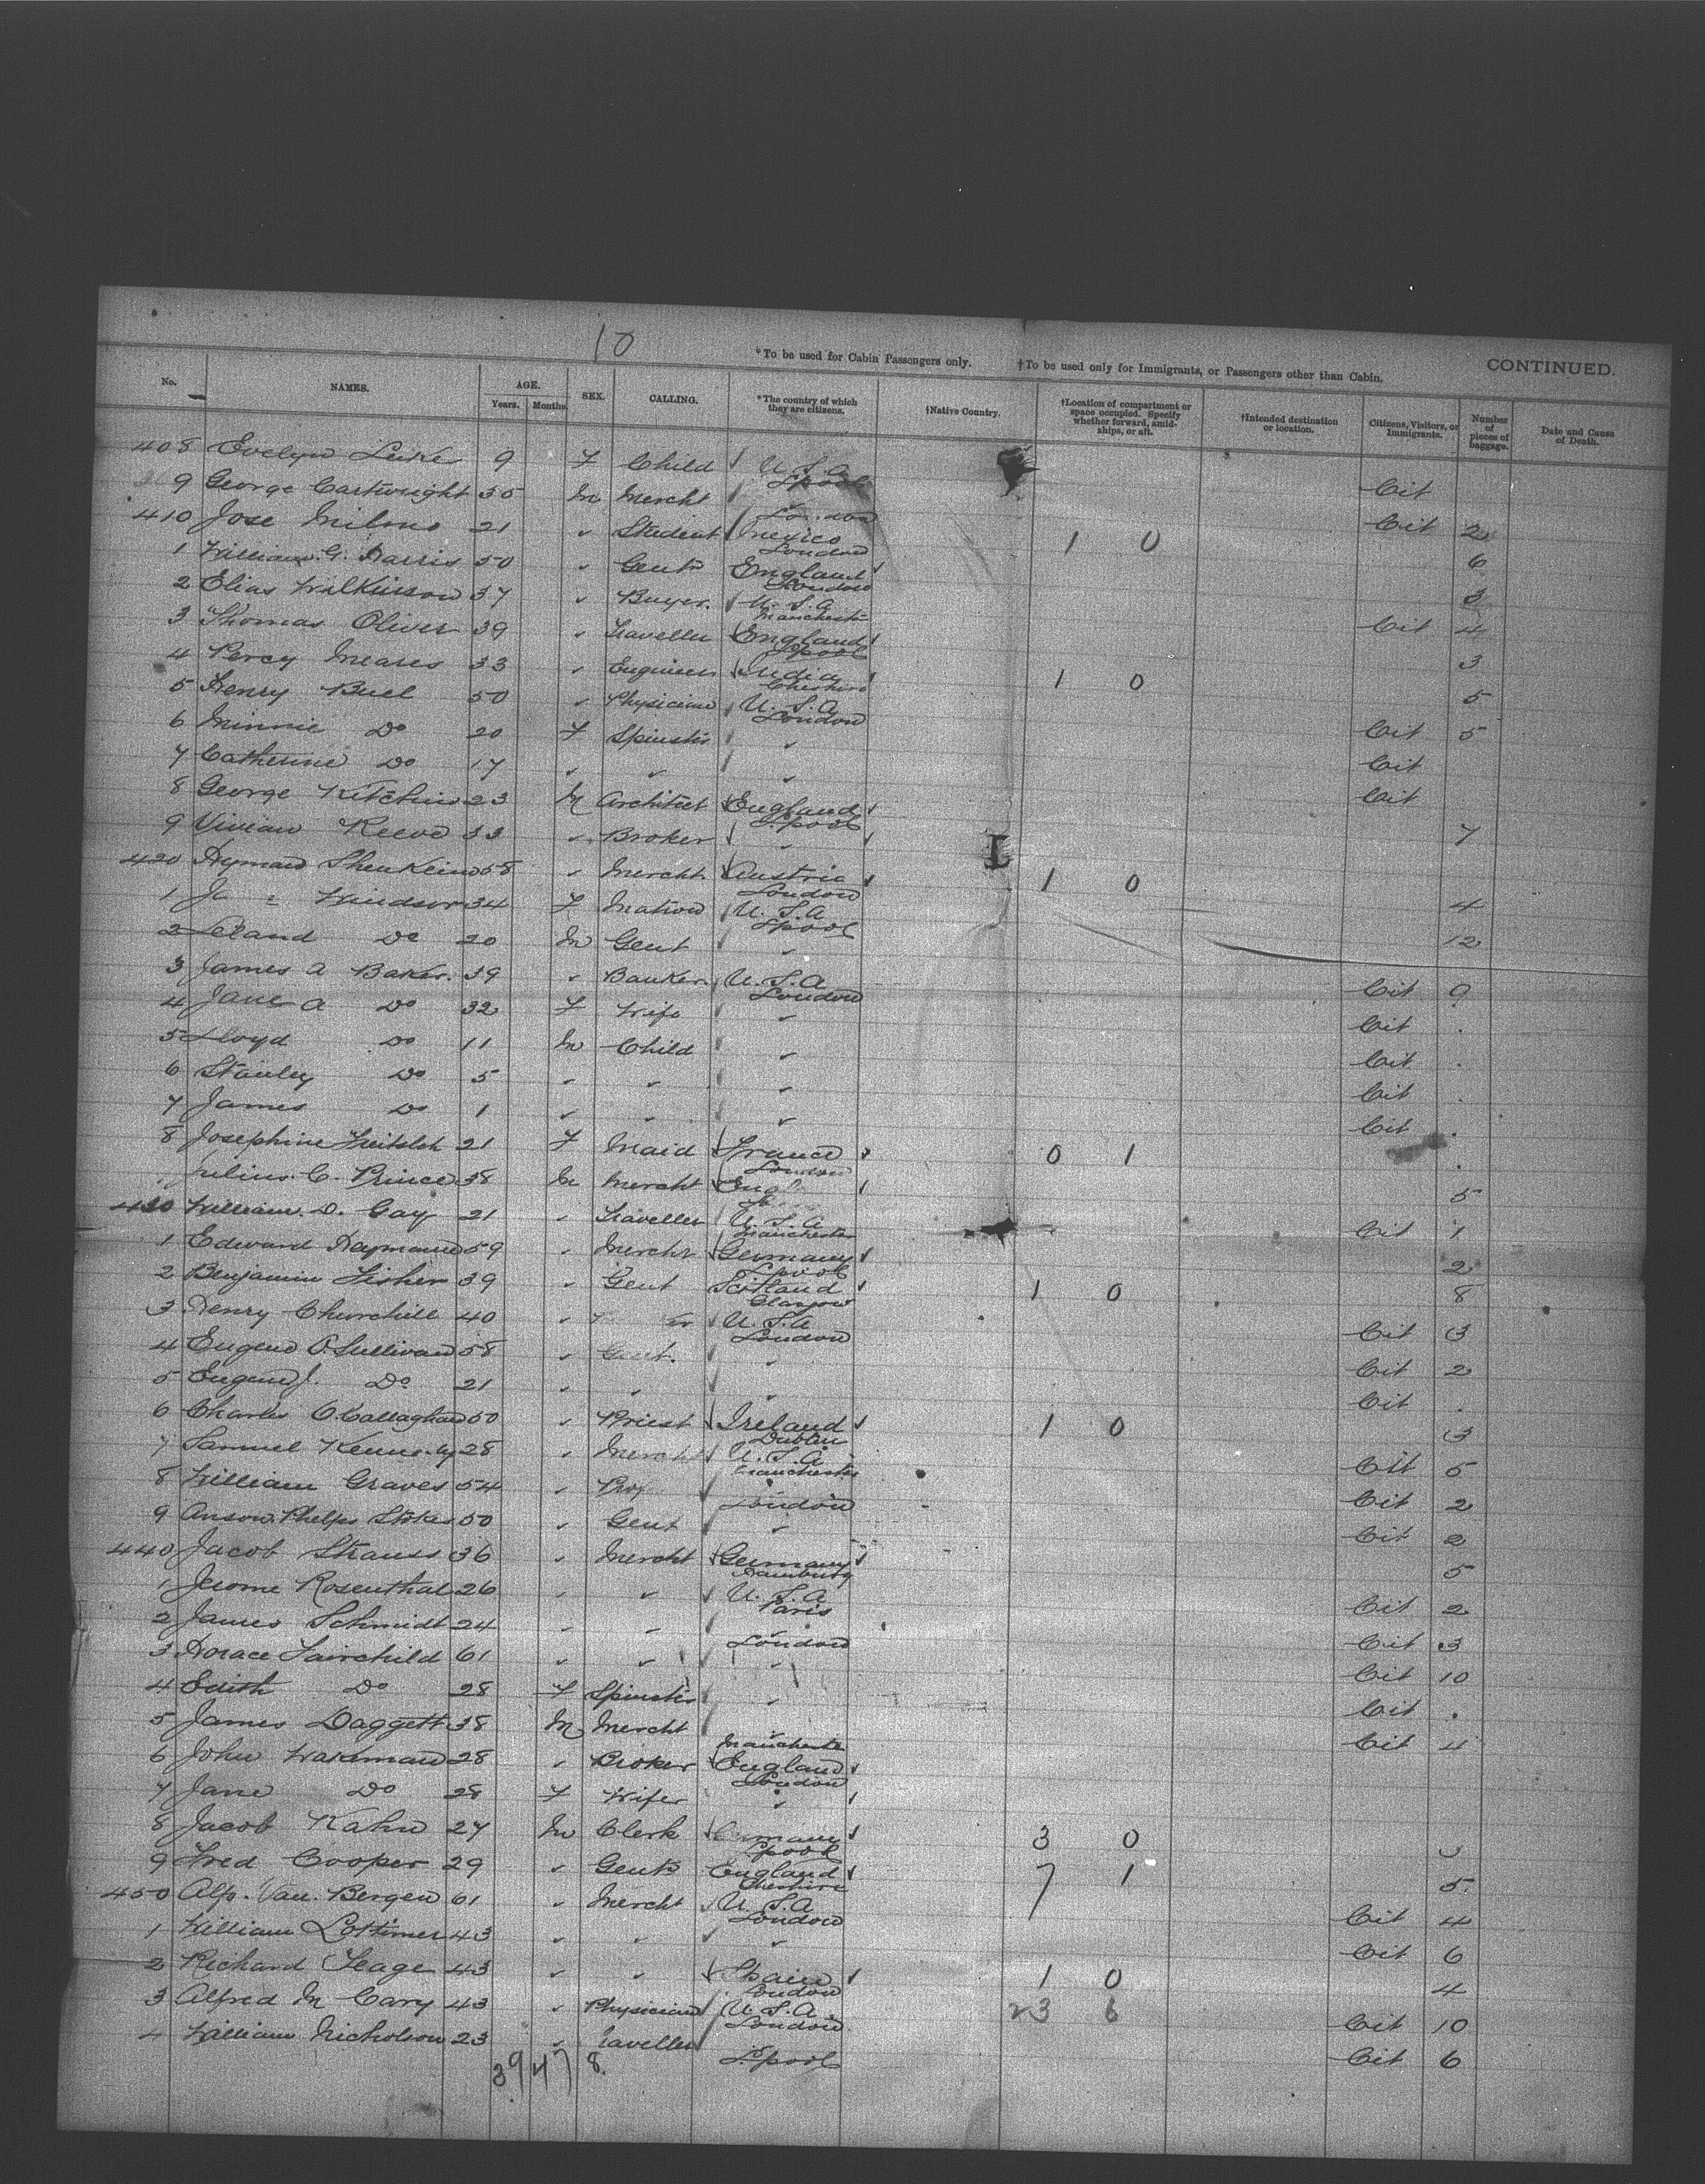 10
*To be used for Cabin Passengers only. †To be used only for Immigrants, or Passengers other than Cabin. CONTINUED.
No. NAMES. AGE. Years. Months. SEX. CALLING. *The country of which they are citizens. †Native Country. †Location of compartment or space occupied. Specify whether forward, amidships, or aft. †Intended destination or location. Citizens, Visitors, or Immigrants. Number of pieces of baggage. Date and Cause of Death.
408 Evelyn 9 F Child U.S.A L'pool Cit
9 George Cartwright 35 M Mercht London Cit 2
410 Jose 21 " Student Mexico London 1 0 6
1 William G. Harris 50 " Gent England London 3
2 Elias Wilkinson 37 " Buyer. U.S.A Manchester Cit 4
3 Thomas Oliver 39 " Traveller England L'pool 3
4 Percy Meares 33 " Engineer India Cheshire 1 0 5
5 Henry Buel 50 " Physician U.S.A London Cit 5
6 Minnie Do 20 F Spinster " Cit
7 Catherine Do 17 " " " Cit
8 George Kitchin 23 M Architect England L'pool 7
9 Vivian Reeve 33 " Broker "
420 Hyman 58 " Mercht Austria London 1 0 4
1 Windsor 34 F Matron U.S.A L'pool 12
2 Leland Do 20 M Gent "
3 James A Baker. 39 " Banker. U.S.A London Cit 9
4 Jane A Do 32 F Wife " Cit .
5 Lloyd Do 11 M Child " Cit .
6 Stanley Do 5 " " " Cit .
7 James Do 1 " " " Cit .
8 Josephine 21 F Maid France London 0 1 .
Julius. C. Prince 38 M Mercht 5
430 William. D. Gay 21 " Traveller U.S.A Manchester Cit 1
1 Edward Heymann 59 " Mercht Germany L'pool 2
2 Benjamin Fisher 39 " Gent Scotland Glasgow 1 0 8
3 Henry Churchill 40 " U.S.A London Cit 3
4 Eugene O'Sullivan 58 " Gent. " Cit 2
5 Eugene J. Do 21 " " " Cit .
6 Charles O'Callaghan 50 " Priest Ireland Dublin 1 0 3
7 Samuel Kennedy 28 " Mercht U.S.A Manchester Cit 5
8 William Graves 54 " London Cit 2
9 Anson Phelps Stokes 50 " Gent " Cit 2
440 Jacob Strauss 36 " Mercht Germany Hamburg 5
1 Jerome Rosenthal 26 " " U.S.A Paris Cit 2
2 James Schmidt 24 " " London Cit 3
3 Horace Fairchild 61 " " " Cit 10
4 Edith Do 28 F Spinster " Cit .
5 James Daggett 38 M Mercht Manchester Cit 4
6 John Wakeman 28 " Broker England London
7 Jane Do 28 F Wife "
8 Jacob Kahn 27 M Clerk Germany L'pool 3 0
9 Fred Cooper 29 " Gent England Cheshire 7 1 5
450 Alp. Van. Bergen 61 " Mercht U.S.A London Cit 4
1 William Lottimer 43 " " " Cit 6
2 Richard Seage 43 " " Spain London 1 0 4
3 Alfred M Cary 43 " Physician U.S.A London 23 6 Cit 10
4 William Nicholson 23 " Traveller L'pool Cit 6
39 47 8.